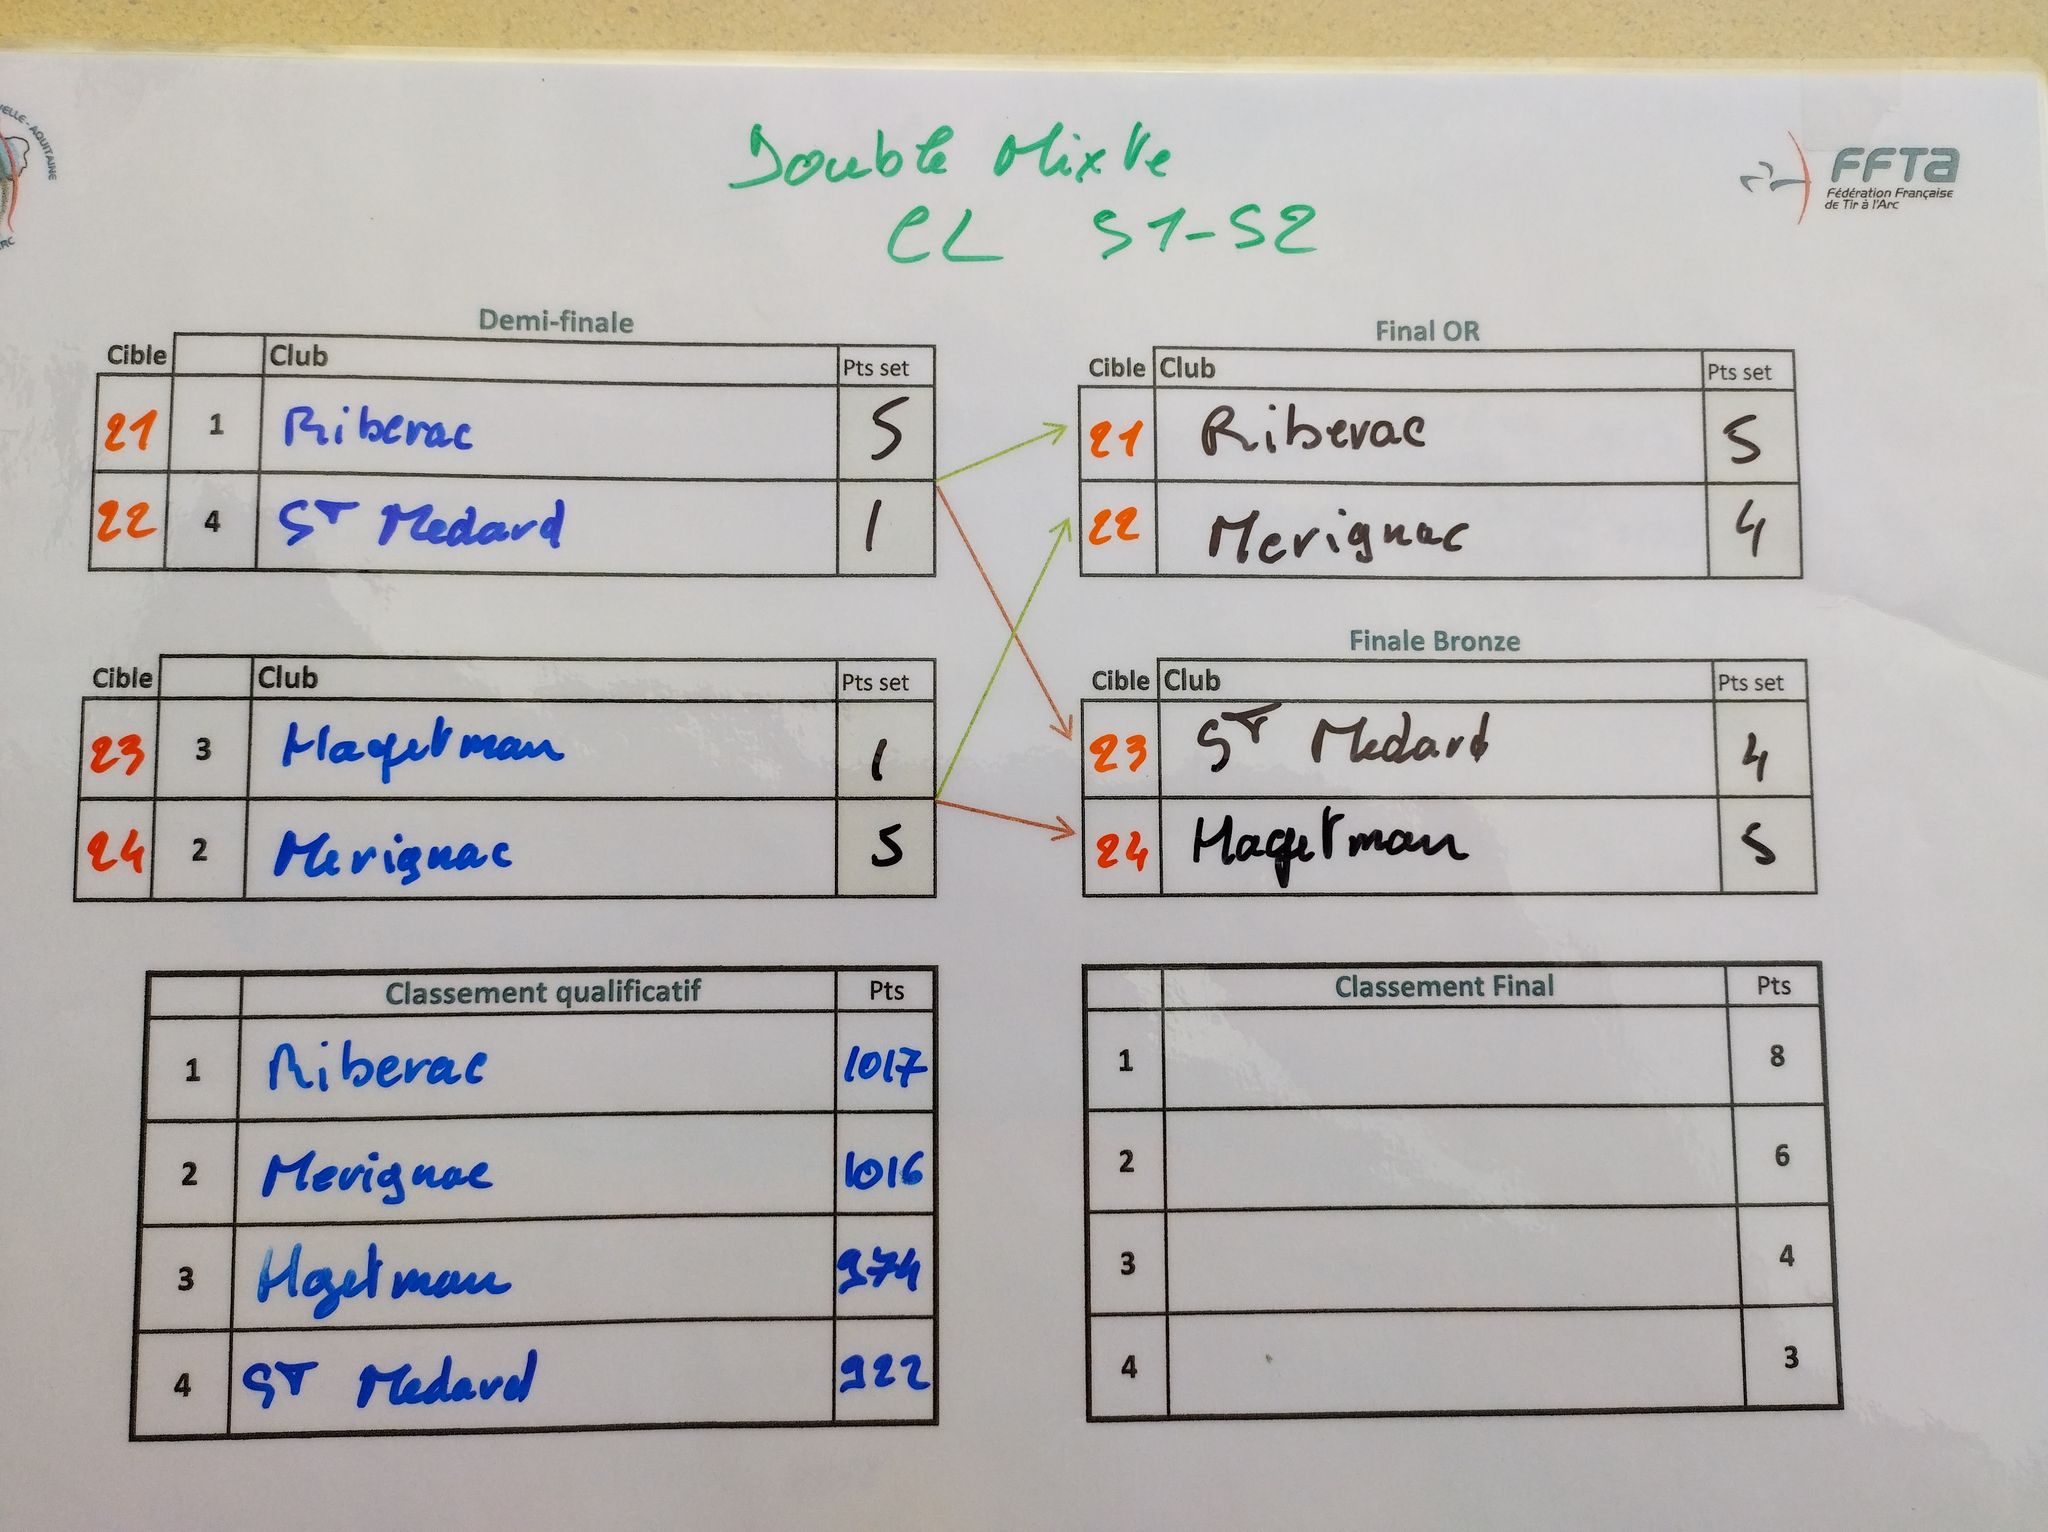 VELLE-AQUITAINE
Double Mixte
CL S1-S2
FFTA
Fédération Française
de Tir à l'Arc
Demi-finale
Cible Club Pts set
21 1 Riberac 5
22 4 ST Medard 1
Cible Club Pts set
23 3 Hagetman 1
24 2 Merignac 5
Final OR
Cible Club Pts set
21 Riberac 5
22 Merignac 4
Finale Bronze
Cible Club Pts set
23 ST Medard 4
24 Hagetman 5
Classement qualificatif Pts
1 Riberac 1017
2 Merignac 1016
3 Hgetman 974
4 ST Medard 922
Classement Final Pts
1 8
2 6
3 4
4 3